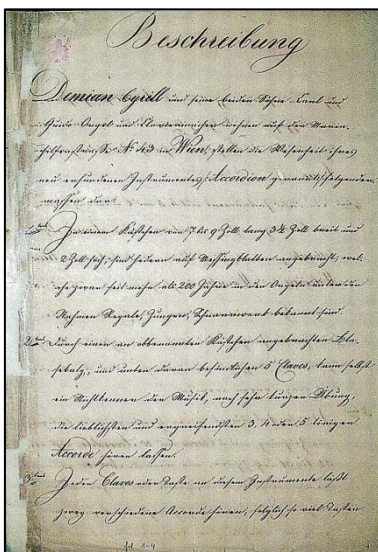 Beschreibung
Demian Cyrill und seine beiden Söhne Carl und
Guido Orgel und Claviermacher wohnen auf der Maria-
hilferstrasse No 43 in Wien, stellen die Wesenheit ihres
neu erfundenen Instrumentes, Accordion genannt, folgender-
massen dar:
In einem Kästchen von 7 bis 9 Zoll lang 3½ Zoll breit und
2 Zoll hoch, sind Federn auf Messingblatten angebracht, wel-
che zwar seit mehr als 200 Jahren in den Orgeln unter den
Nahmen Regale, Zungen, Schnarrwerk bekannt sind.
Durch einen an obbenannten Kästchen angebrachten Bla-
sebalg, und unten daran befindlichen 5 Claves, kann selbst
ein Nichtkenner der Musik, nach sehr kurzer Übung,
die lieblichsten und ergreifendsten 3, 4 oder 5 tönigen
Accorde hören lassen.
Jeder Claves oder Taste an diesem Instrumente läßt
zwey verschiedene Accorde hören, folglich so viel Tasten